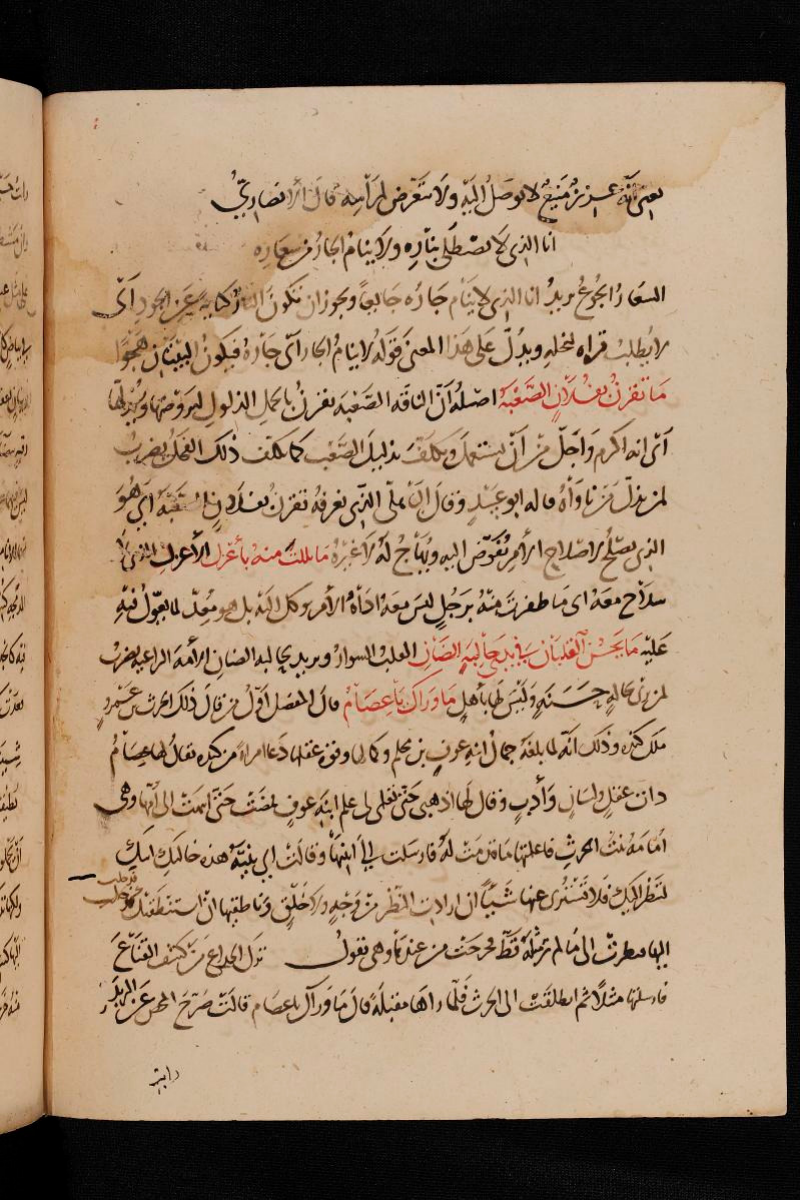 يعنى انه عزيز منيع لا يوصل اليه ولا يتعرض لمراسه قال الانصارى
انا الذى لا يصطلى بناره ولا ينام الجار من سعاره
السعار الجوع يريد انا الذى لا ينام جاره جايعا ويجوز ان تكون النار كناية عن الجود اى
لا يطلب قراه لبخله ويدل على هذا المعنى قوله لا ينام الجار اى جاره فيكون البيتان هجوا
ما تقرن بفلان الصعبة اصله ان الناقة الصعبة تقرن بالجمل الذلول ليروضها ويذللها
اى انه اكرم واجل من ان يستعمل ويكلف تذليل الصعب كما يكلف ذلك الفحل يضرب
لمن يذل من ناواه قاله ابو عبيد وقال الباهلى الذى نعرفه تقرن بفلان الصعبة اى هو
الذى يصلح لاصلاح الامر يفوض اليه ويهاج له لا غيره ما بللت منه باعزل الاعزل الذى لا
سلاح معه اى ما ظفرت منه برجل ليس معه اداة لامر وكل اليه بل هو معد لما يعول فيه
عليه ما يحسن القلبان فى يدى حالبة الضان القلب السوار ويريد بحالبة الضان الامة الراعية يضرب
لمن يرى بحالة حسنة وليس لها باهل ما وراك يا عصام قال المفضل اول من قال ذلك الحرث بن عمرو
ملك كندة وذلك انه لما بلغه جمال ابنة عوف بن محلم وكمالها وقوة عقلها دعا امراة من كندة يقال لها عصام
ذات عقل ولسان وادب وقال لها اذهبى حتى تعلمى لى علم ابنة عوف فمضت حتى انتهت الى امها وهى
امامة بنت الحرث فاعلمتها ما قدمت له فارسلت الى ابنتها وقالت اى بنية هذه خالتك اتتك
لتنظر اليك فلا تستترى عنها شيئا ان ارادت النظر من وجه ولا خلق وناطقيها ان استنطقتك فدخلت
اليها فنظرت الى ما لم تر مثله قط فخرجت من عندها وهى تقول ترك الخداع من كشف القناع
فارسلتها مثلا ثم انطلقت الى الحرث فلما راها مقبلة قال ما وراك يا عصام قالت صرح المحض عن الزبد
رايت